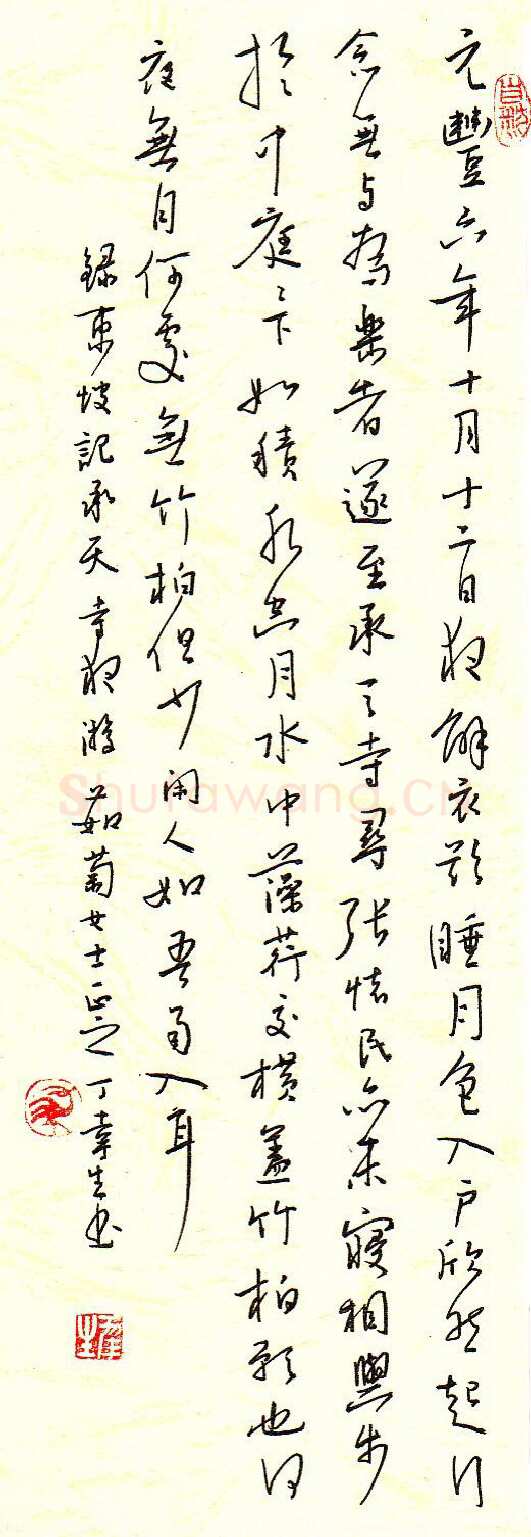 元豐六年十月十二日夜解衣欲睡月色入戶欣然起行
念無与為樂者遂至承天寺尋張懷民亦未寢相與步
於中庭々下如積水空明水中藻荇交橫蓋竹柏影也何
夜無月何處無竹柏但少閑人如吾兩人耳
錄東坡記承天寺夜游 茹菊女士正之 丁生書
Shufawang.CN